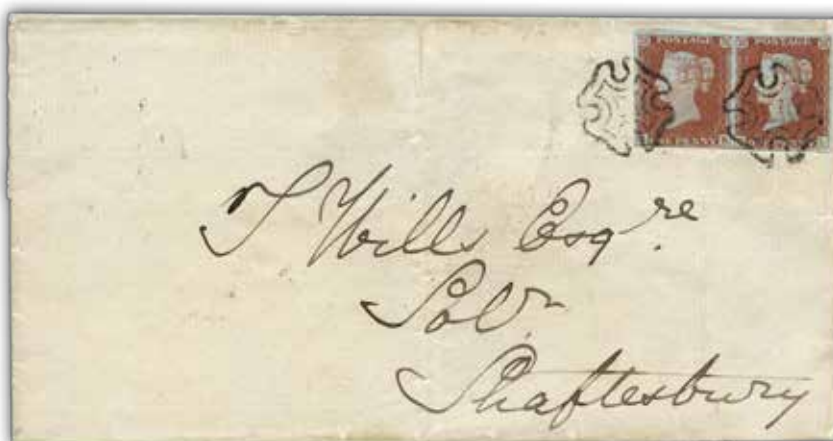 POSTAGE POSTAGE
T Wills Esqre.
Solr.
Shaftesbury